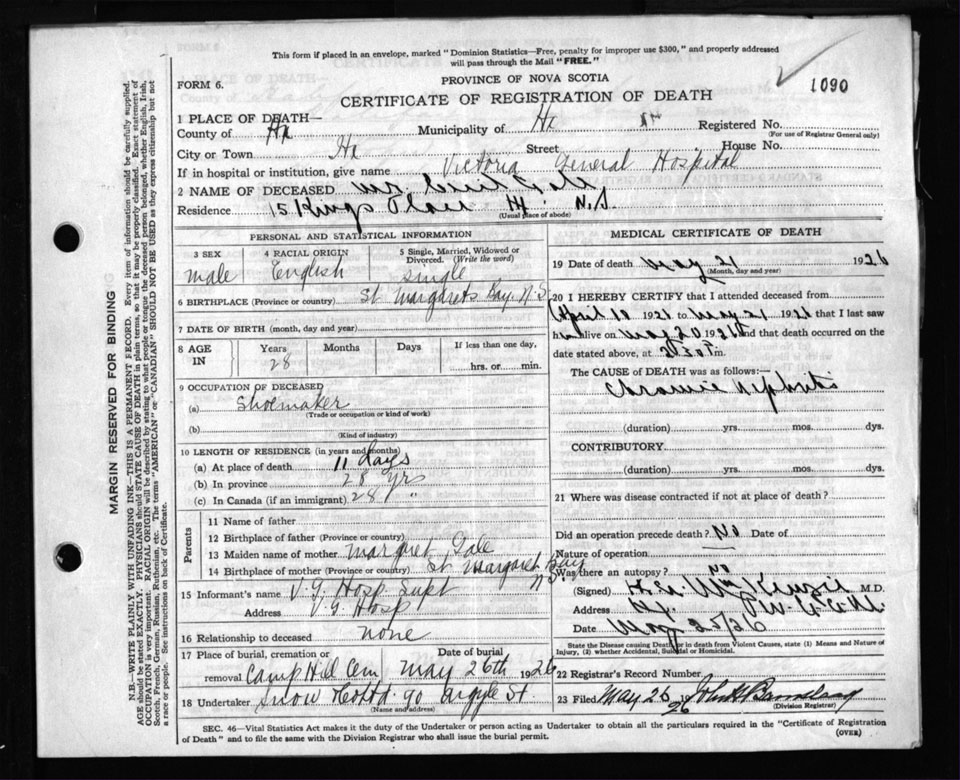 This form if placed in an envelope, marked "Dominion Statistics—Free, penalty for improper use $300," and properly addressed
will pass through the Mail "FREE."
FORM 6.
PROVINCE OF NOVA SCOTIA
1090
CERTIFICATE OF REGISTRATION OF DEATH
1 PLACE OF DEATH—
County of Hx Municipality of Hx Registered No.
(For use of Registrar General only)
City or Town Hx Street House No.
If in hospital or institution, give name Victoria General Hospital
2 NAME OF DECEASED Mr. Cecil Gale
Residence 15 Kings Place Hx N.S.
(Usual place of abode)
PERSONAL AND STATISTICAL INFORMATION
3 SEX 4 RACIAL ORIGIN 5 Single, Married, Widowed or
Divorced. (Write the word)
male English single
6 BIRTHPLACE (Province or country) St Margarets Bay, N.S.
7 DATE OF BIRTH (month, day and year)
8 AGE IN Years Months Days If less than one day,
28 hrs. or min.
9 OCCUPATION OF DECEASED
(a) Shoemaker
(Trade or occupation or kind of work)
(b)
(Kind of industry)
10 LENGTH OF RESIDENCE (in years and months)
(a) At place of death 11 days
(b) In province 28 yrs
(c) In Canada (if an immigrant) 28 "
Parents
11 Name of father
12 Birthplace of father (Province or country)
13 Maiden name of mother Margret Gale
14 Birthplace of mother (Province or country) St Margaret Bay
N.S.
15 Informant's name V.G. Hosp Supt
Address V.G. Hosp
16 Relationship to deceased none
17 Place of burial, cremation or Date of burial
removal Camp Hill Cem May 26th 1926
18 Undertaker Snow Co Ltd. 90 Argyle St.
(Name and address)
MEDICAL CERTIFICATE OF DEATH
19 Date of death May 21 1926
(Month, day and year)
20 I HEREBY CERTIFY that I attended deceased from
April 10 1926 to May 21 1926 that I last saw
him alive on May 20 1926 and that death occurred on the
date stated above, at m.
The CAUSE of DEATH was as follows:—
Chronic Nephritis
(duration) yrs. mos. dys.
CONTRIBUTORY
(duration) yrs. mos. dys.
21 Where was disease contracted if not at place of death?
Did an operation precede death? No Date of
Nature of operation
Was there an autopsy? no
(Signed) M.D.
Address Hx.
Date May 25/26
State the Disease causing Death, or in death from Violent Causes, state (1) Means and Nature of
Injury, (2) whether Accidental, Suicidal or Homicidal.
22 Registrar's Record Number
23 Filed May 26 26
(Division Registrar)
SEC. 46—Vital Statistics Act makes it the duty of the Undertaker or person acting as Undertaker to obtain all the particulars required in the "Certificate of Registration
of Death" and to file the same with the Division Registrar who shall issue the burial permit.
(OVER)
MARGIN RESERVED FOR BINDING
N.B.—WRITE PLAINLY WITH UNFADING INK—THIS IS A PERMANENT RECORD. Every item of information should be carefully supplied.
AGE should be stated EXACTLY. PHYSICIANS should STATE CAUSE OF DEATH in plain terms, so that it may be properly classified. Exact statement of
OCCUPATION is very important. RACIAL ORIGIN will be described by stating to what people or tongue the deceased person belonged, whether English, Irish,
Scotch, French, German, Russian, Ruthenian, etc. The terms "AMERICAN" or "CANADIAN" SHOULD NOT BE USED as they express citizenship but not
a race or people. See instructions on back of Certificate.